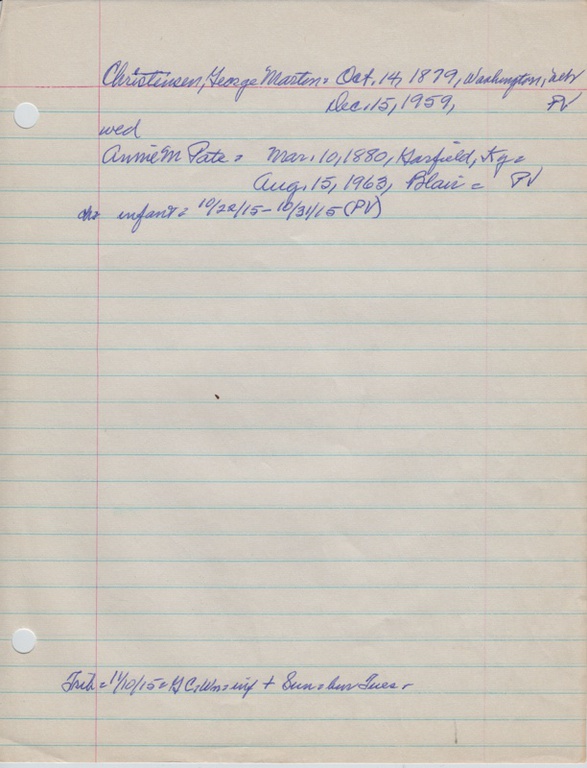 Christensen, George Martin = Oct. 14, 1879, Washington, Nebr
Dec. 15, 1959, PV
wed
Annie M Pate = Mar. 10, 1880, Garfield, Ky =
Aug. 15, 1963, Blair = PV
ch: infant = 10/22/15 - 10/31/15 (PV)
Trib = 11/10/15 = G C, Wn = inf + Sun = bur Tues.